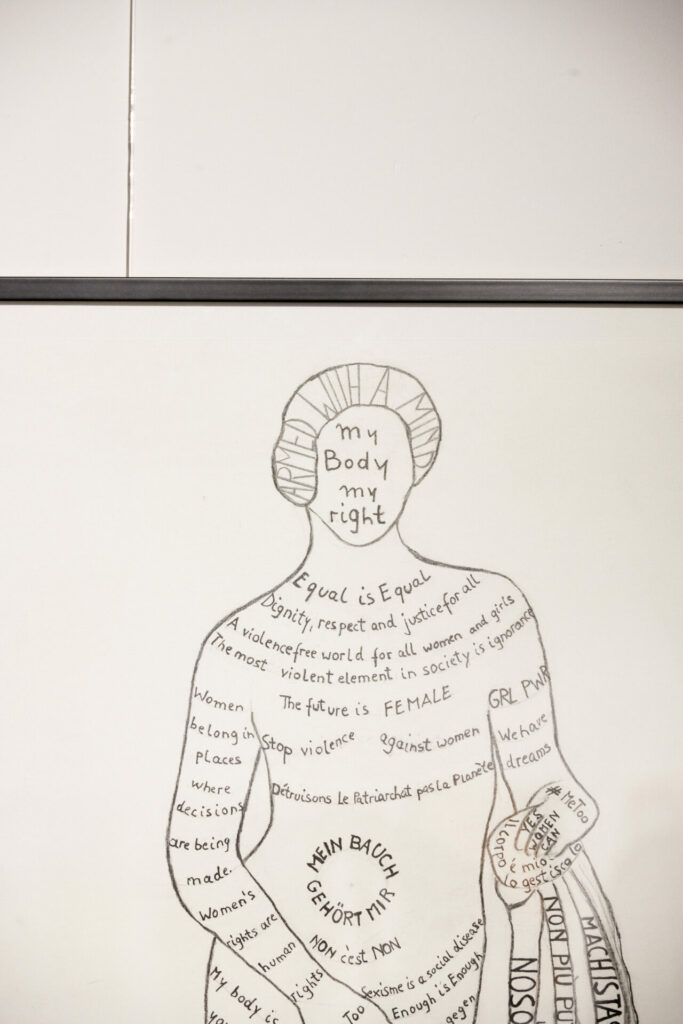 ARMED WITH A MIND
my
Body
my
right
Equal is Equal
Dignity, respect and justice for all
A violencefree world for all women and girls
The most violent element in society is ignorance
The future is FEMALE
GRL PWR
Women
belong in
places
where
decisions
are being
made.
Stop violence against women
We have
dreams
Détruisons Le Patriarchat pas La Planète
#MeToo
YES
WOMEN
CAN
il corpo
é mio,
lo gestisco io
MEIN BAUCH
GEHÖRT MIR
NON c'est NON
Women's
rights are
human
rights
Sexisme is a social disease
Enough is Enough
gegen
Too
My body is
NON PIÙ
MACHISTA